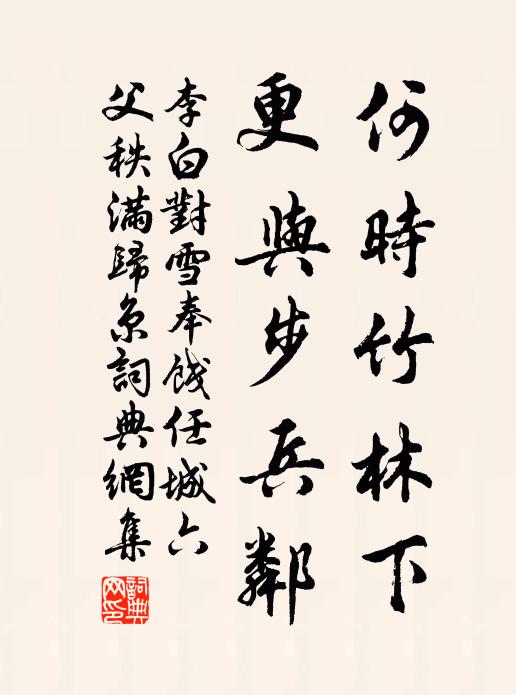 何時竹林下
更與步兵鄰
李白對雪奉餞任城六
父秩滿歸京詞典網集
詞典網印